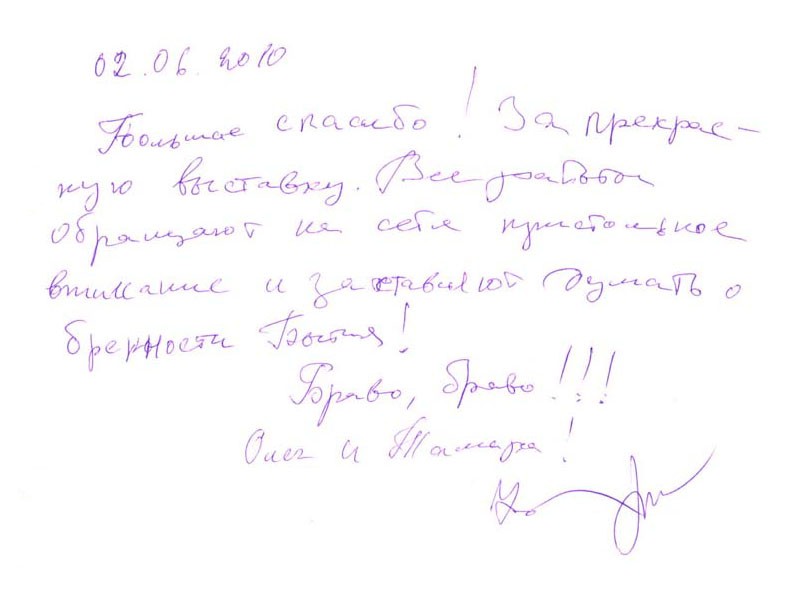 02.06.2010
Большое спасибо! За прекрас-
ную выставку. Все работы
обращают на себя пристальное
внимание и заставляют думать о
бренности Бытия!
Браво, браво!!!
Олег и Тамара!